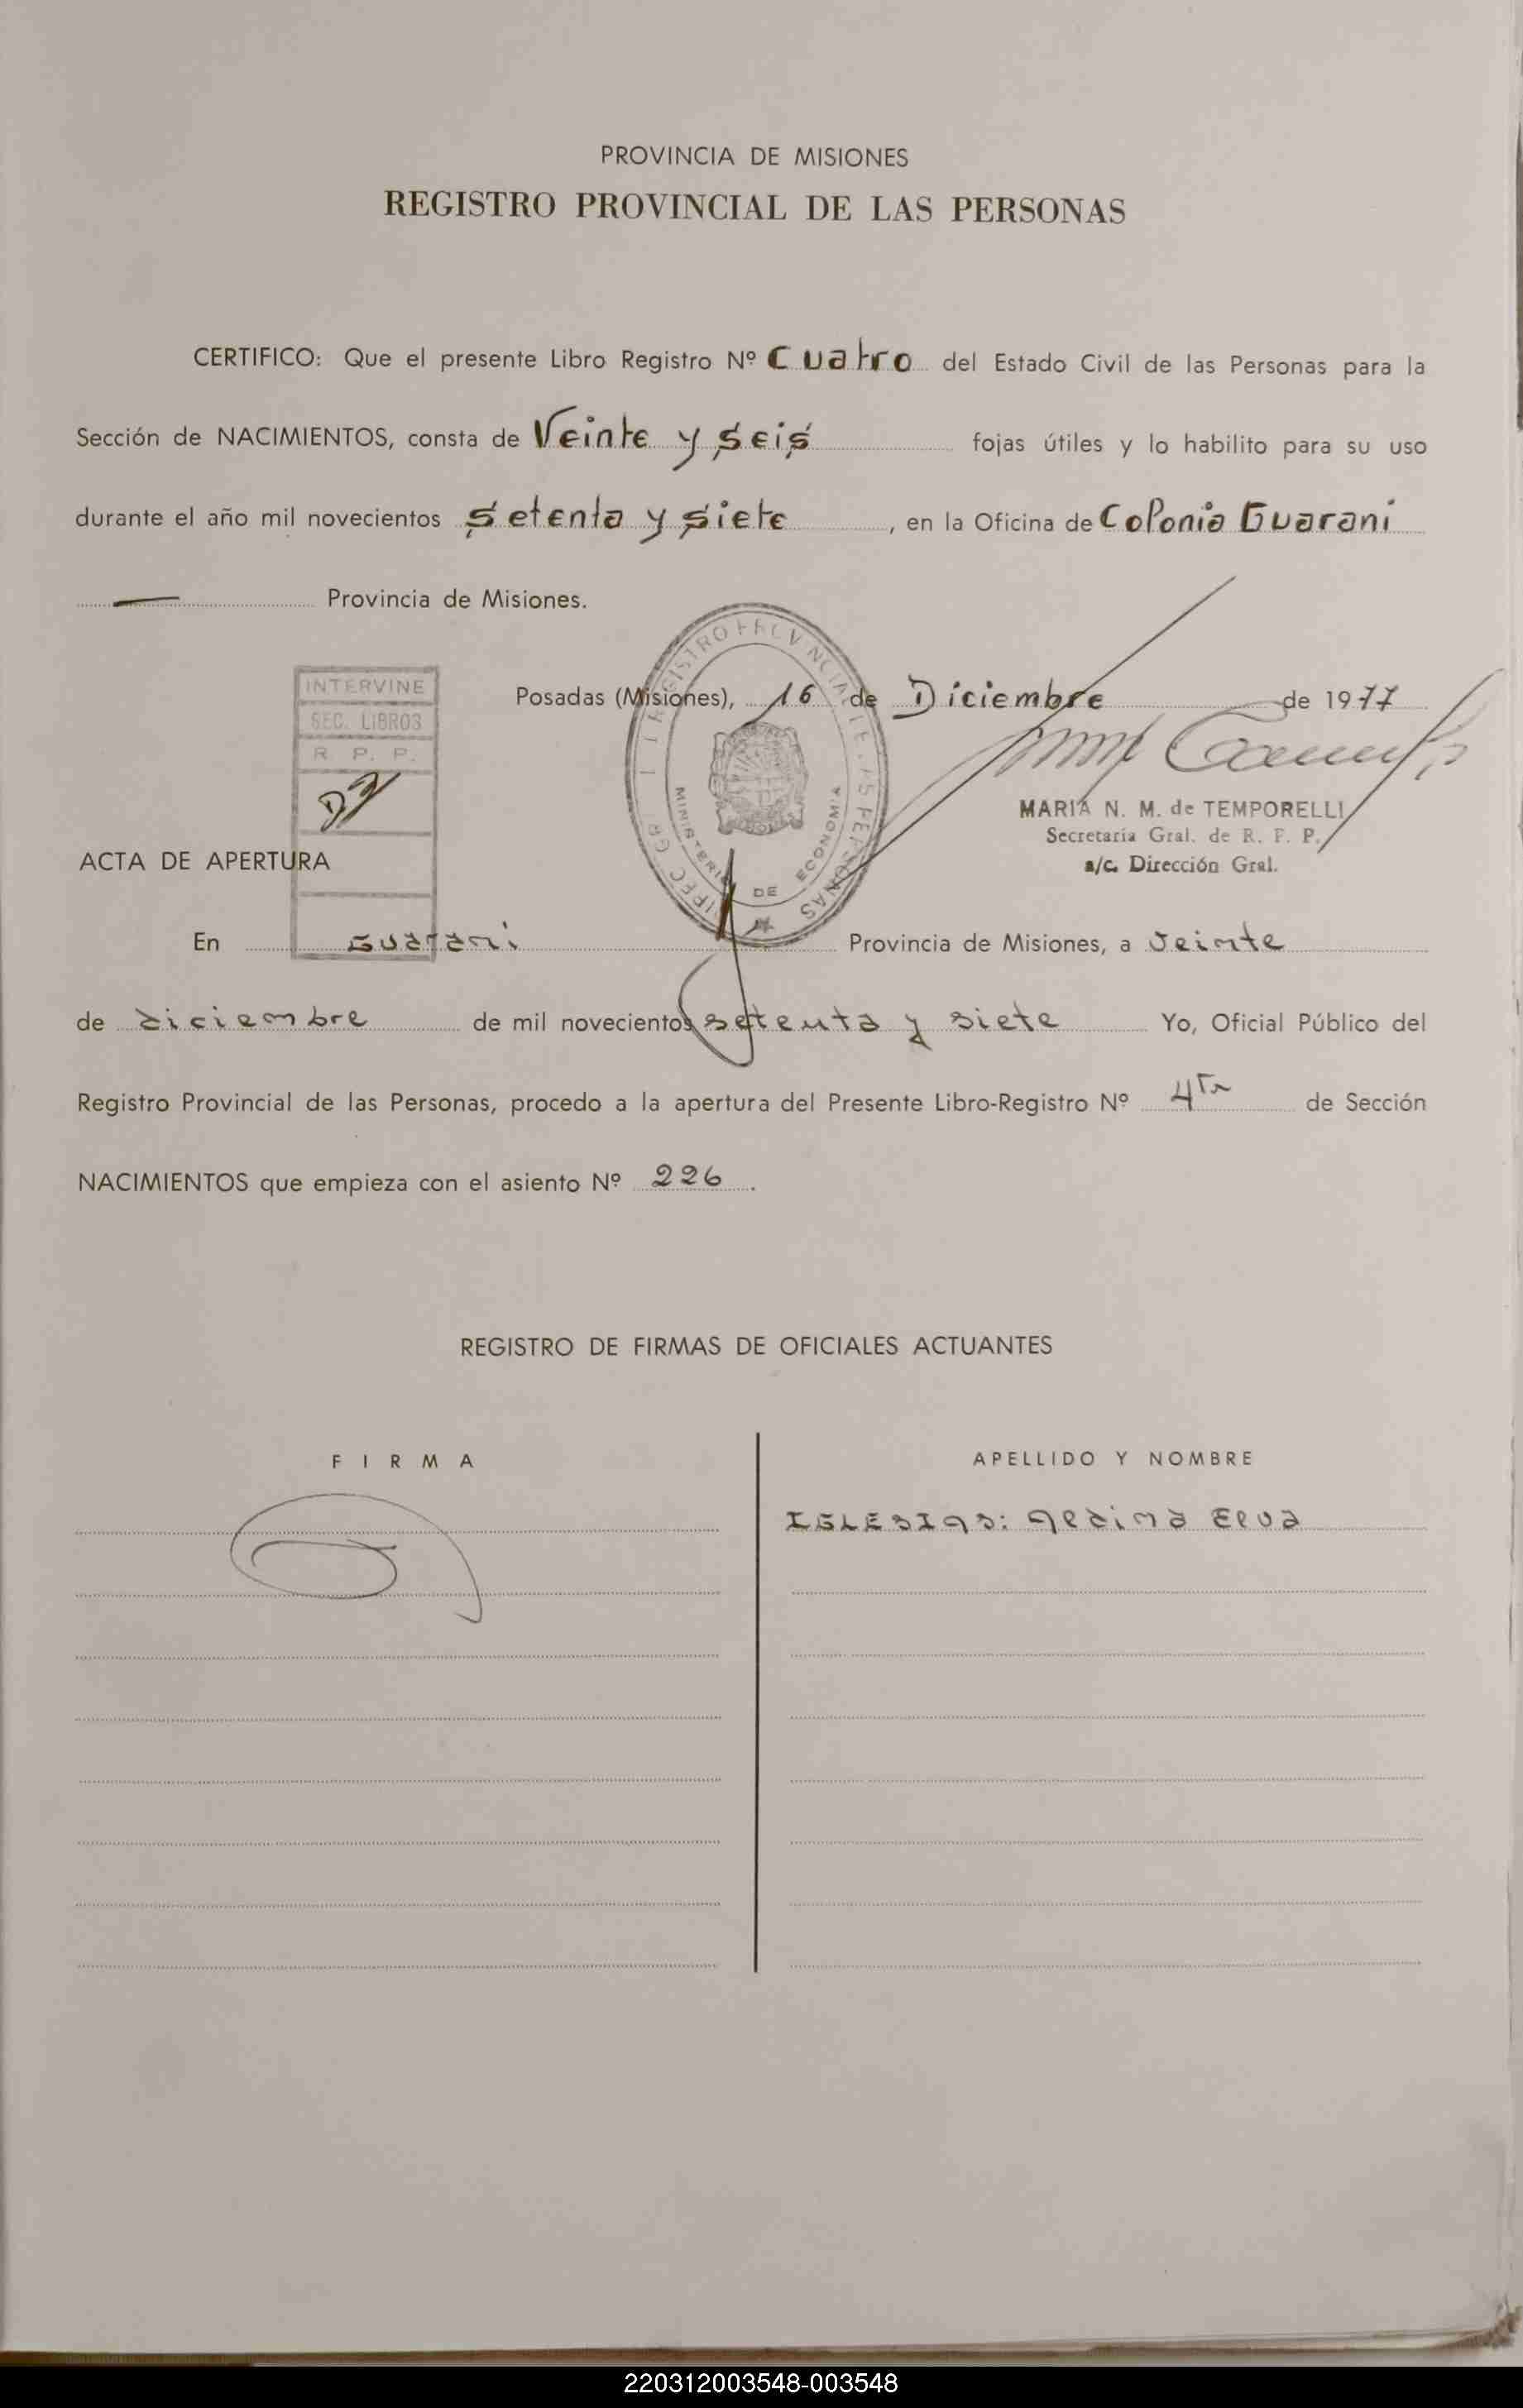 PROVINCIA DE MISIONES
REGISTRO PROVINCIAL DE LAS PERSONAS
CERTIFICO: Que el presente Libro Registro Nº Cuatro del Estado Civil de las Personas para la
Sección de NACIMIENTOS, consta de Veinte y seis fojas útiles y lo habilito para su uso
durante el año mil novecientos setenta y siete, en la Oficina de Colonia Guarani
Provincia de Misiones.
INTERVINE
SEC. LIBROS
R. P. P.
Posadas (Misiones), 16 de Diciembre de 1977
MINISTERIO DE ECONOMIA
MARIA N. M. de TEMPORELLI
Secretaria Gral. de R. P. P.
a/c. Dirección Gral.
ACTA DE APERTURA
En Guarani Provincia de Misiones, a veinte
de diciembre de mil novecientos setenta y siete Yo, Oficial Público del
Registro Provincial de las Personas, procedo a la apertura del Presente Libro-Registro Nº 4to de Sección
NACIMIENTOS que empieza con el asiento Nº 226.
REGISTRO DE FIRMAS DE OFICIALES ACTUANTES
FIRMA
APELLIDO Y NOMBRE
IGLESIAS: Elva
220312003548-003548